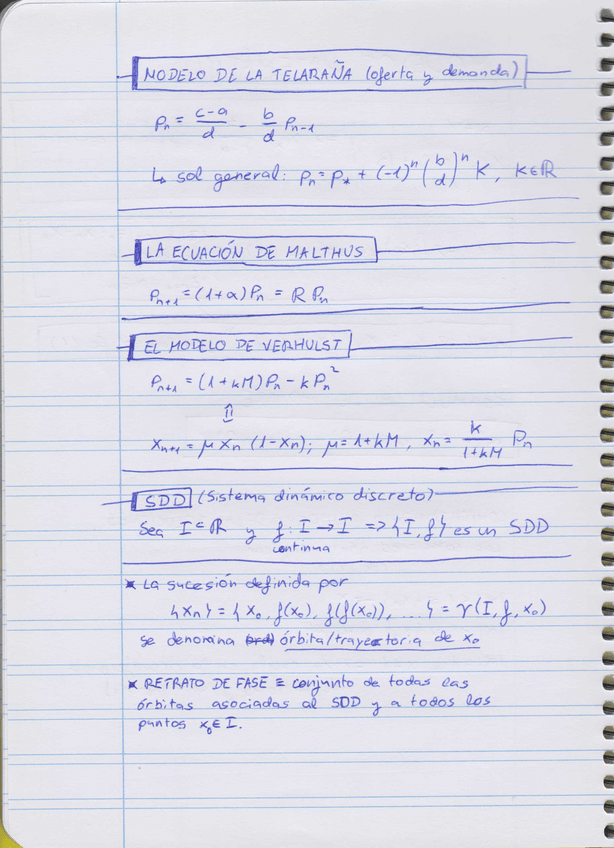 MODELO DE LA TELARAÑA (oferta y demanda)
Pn = (c-a)/d - (b/d) Pn-1
↳ sol general: Pn = P* + (-1)^n (b/d)^n K, K∈ℝ
LA ECUACIÓN DE MALTHUS
Pn+1 = (1+α)Pn = R Pn
EL MODELO DE VERHULST
Pn+1 = (1+kM)Pn - kPn²
⇕
Xn+1 = μ Xn (1-Xn); μ = 1+kM, Xn = k/(1+kM) Pn
SDD (Sistema dinámico discreto)
Sea I⊂ℝ y f: I → I => {I, f} es un SDD
continua
* La sucesión definida por
{Xn} = {x0, f(x0), f(f(x0)), ...} = γ(I, f, x0)
se denomina órbita/trayectoria de x0
* RETRATO DE FASE ≡ conjunto de todas las
órbitas asociadas al SDD y a todos los
puntos x0 ∈ I.